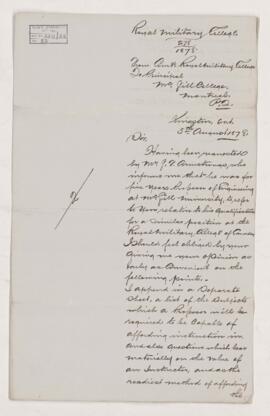 Royal Military College
1878.
From Comdt Royal Military College
To Principal
McGill College,
Montreal.
P.Q.
Kingston, Ont
5th August 1878.
Sir,
Having been requested
by Mr. G. F. Armstrong, who
informs me that he was for
five years Professor of Engineering
at McGill University, to refer
to you relative to his qualifications
for a similar position at the
Royal Military College of Canada
I should feel obliged by your
giving me your opinion as
fully as convenient on the
following points.
I append in a separate
sheet, a list of the subjects
which a Professor will be
required to be capable of
affording instruction in
and also questions which bear
materially on the value of
an Instructor, and as the
readiest method of affording
the